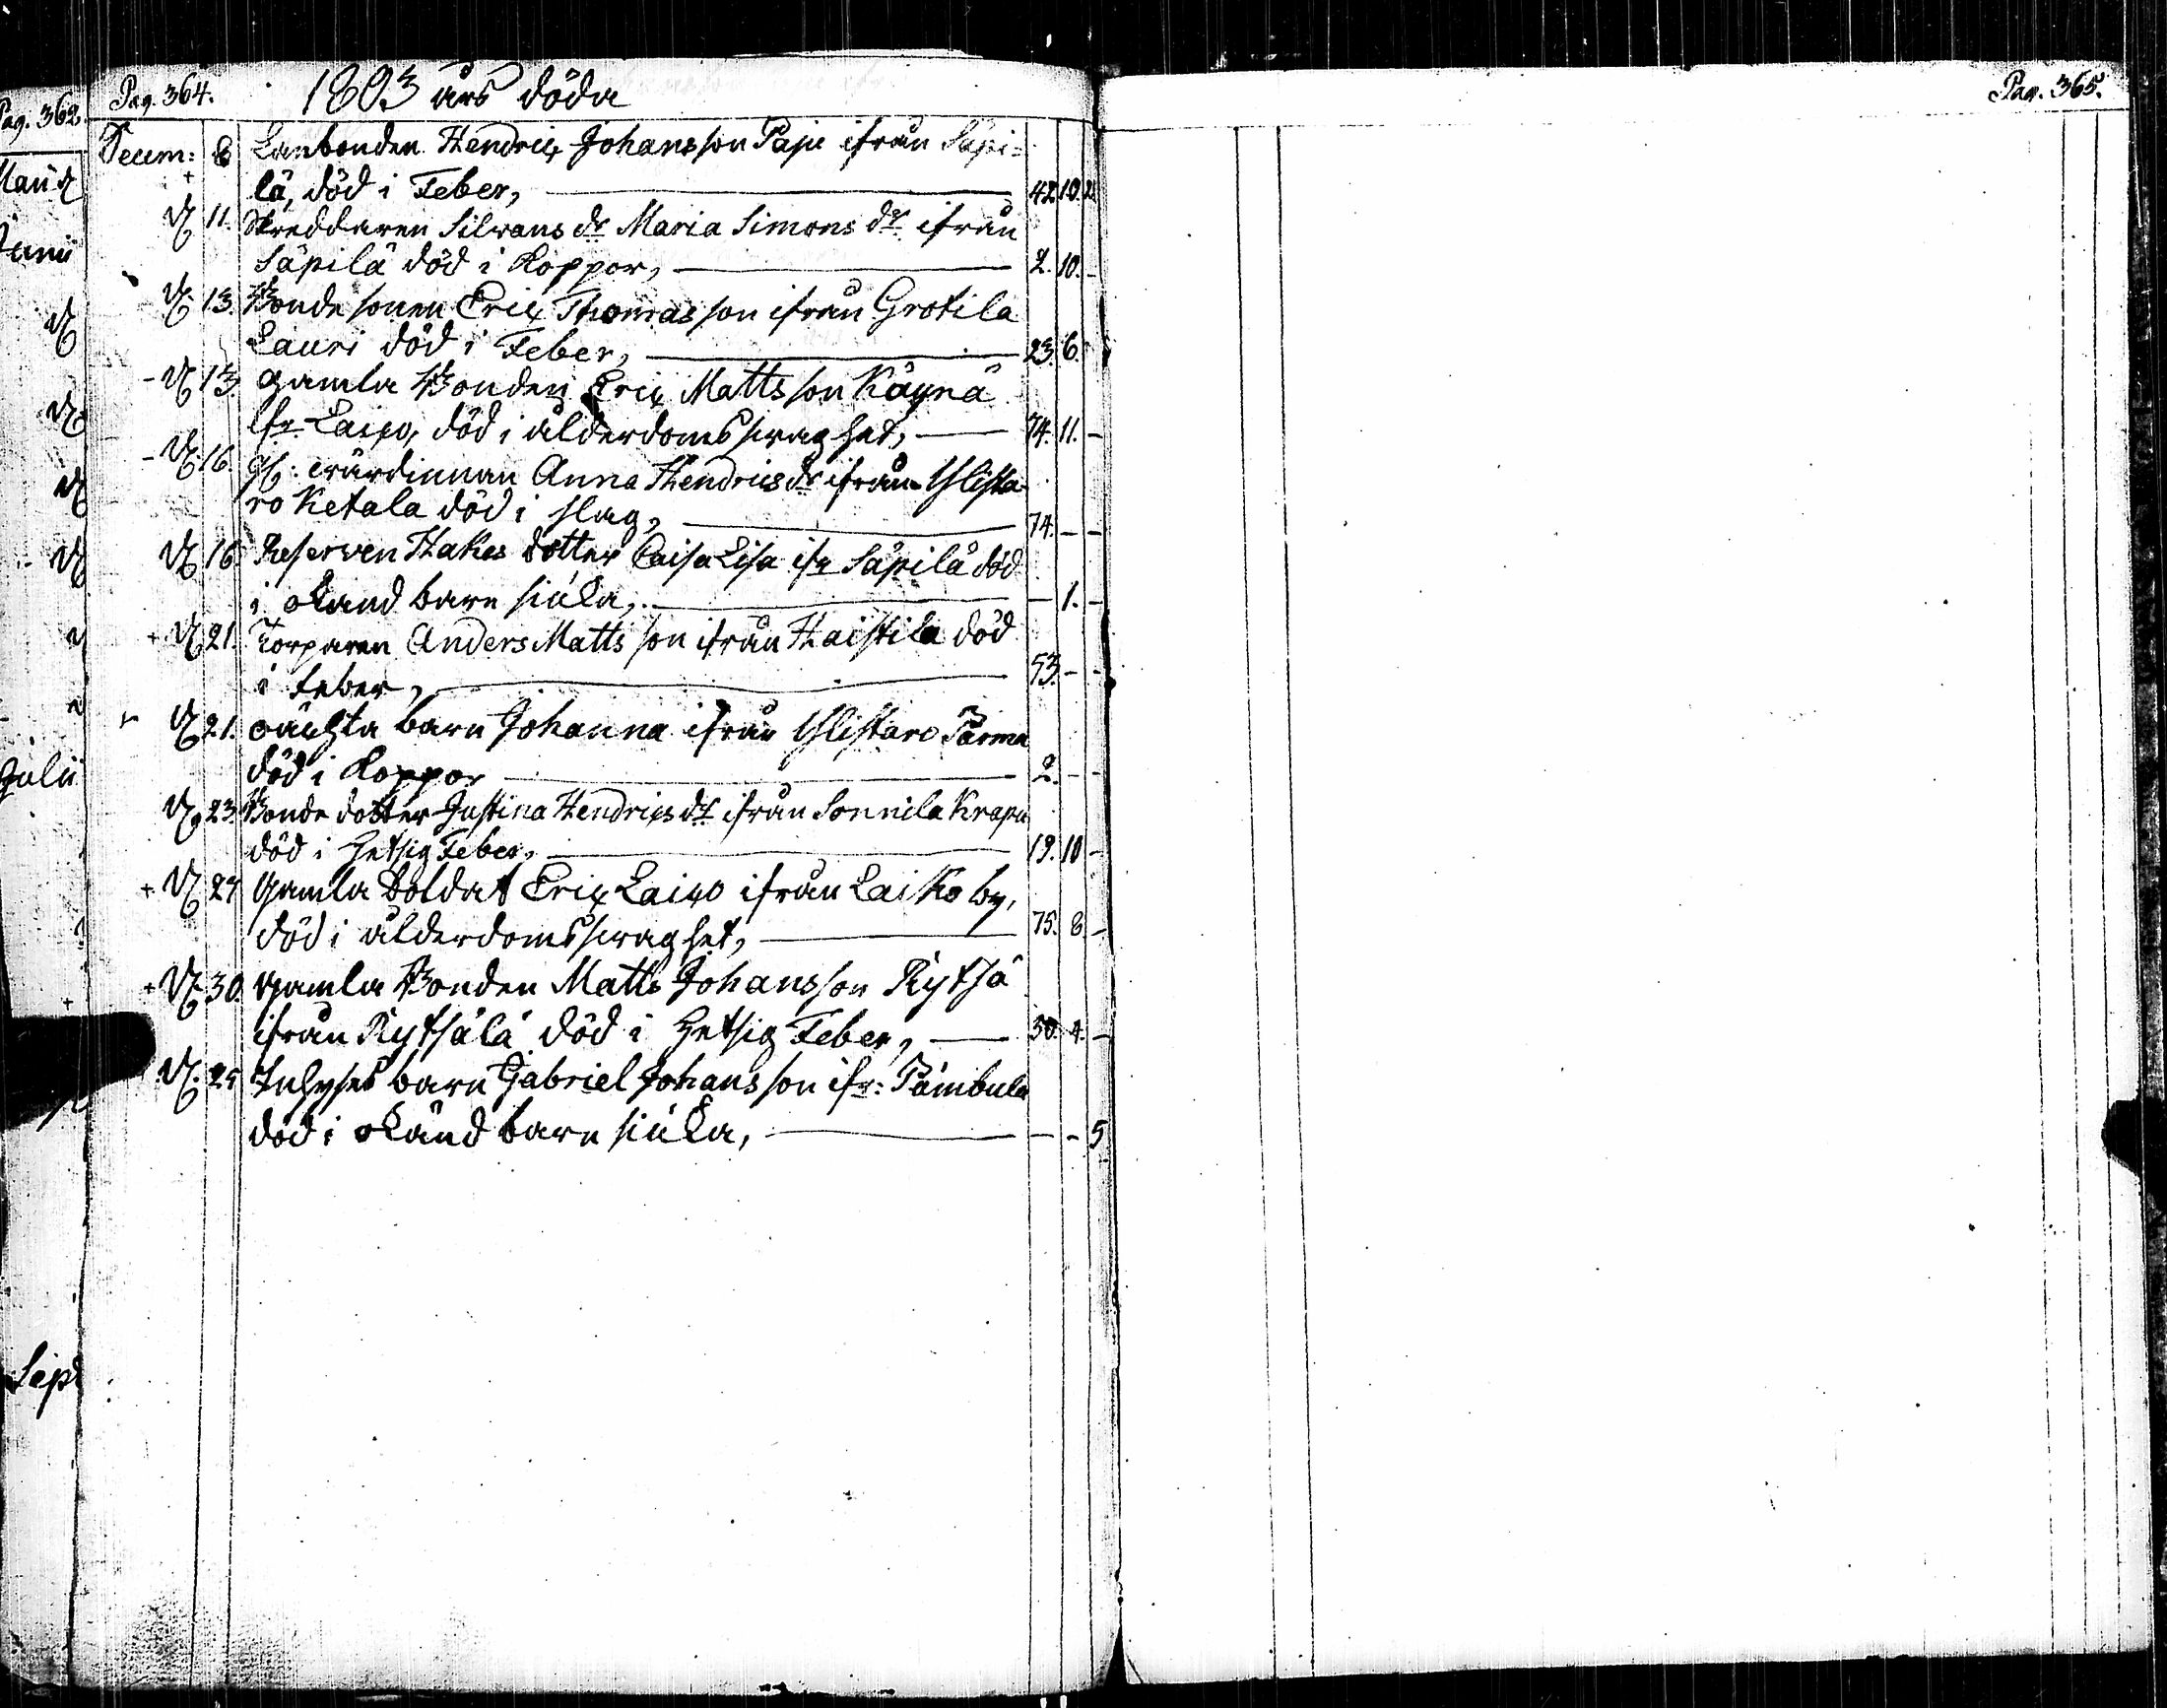 Pag. 362.
Pag. 364.
1803 års döda
Pag. 365.
Decem: 8 Lanbonden Hendric Johansson Paju ifrån Säpi=
lä, död i Feber, 42. 10. 2
11. Skreddaren Silvans dr Maria Simons dr ifrån
Säpilä död i Koppor, 2. 10. -
13. Bonde sonen Eric Thomas son ifrån Grotila
Lauri död i Feber, 23. 6. -
13. gamla Bonden Eric Matts son Käyrä
ifr Laiko, död i ålderdomsswaghet, 74. 11. -
16. gl: wärdinnan Anna Hendrics dr ifrån Ylista
ro Ketala död i slag, 74. - -
16 Reserven Hakes dotter Caisa Lisa ifr Säpilä död
i okänd barn siuka, - 1. -
21. Torparen Anders Matts son ifrån Haistila död
i feber, 53. - -
21. oächta barn Johanna ifrån Ylistaro Parma
död i Koppor 2. - -
23. Bonde dotter Justina Hendrics dr ifrån Sonnila Krapu
död i hetsig Feber, 19. 10 -
27 gamla Soldat Eric Laiko ifrån Laiko by,
död i ålderdomsswaghet, 75. 8. -
30. gamla Bonden Matts Johansson Rytsä
ifrån Rytsälä död i hetsig Feber, 50. 4. -
25 Inhyses barn Gabriel Johans son ifr: Pämbula
död i okänd barn siuka, - - 5
Junii
Julii
Sept